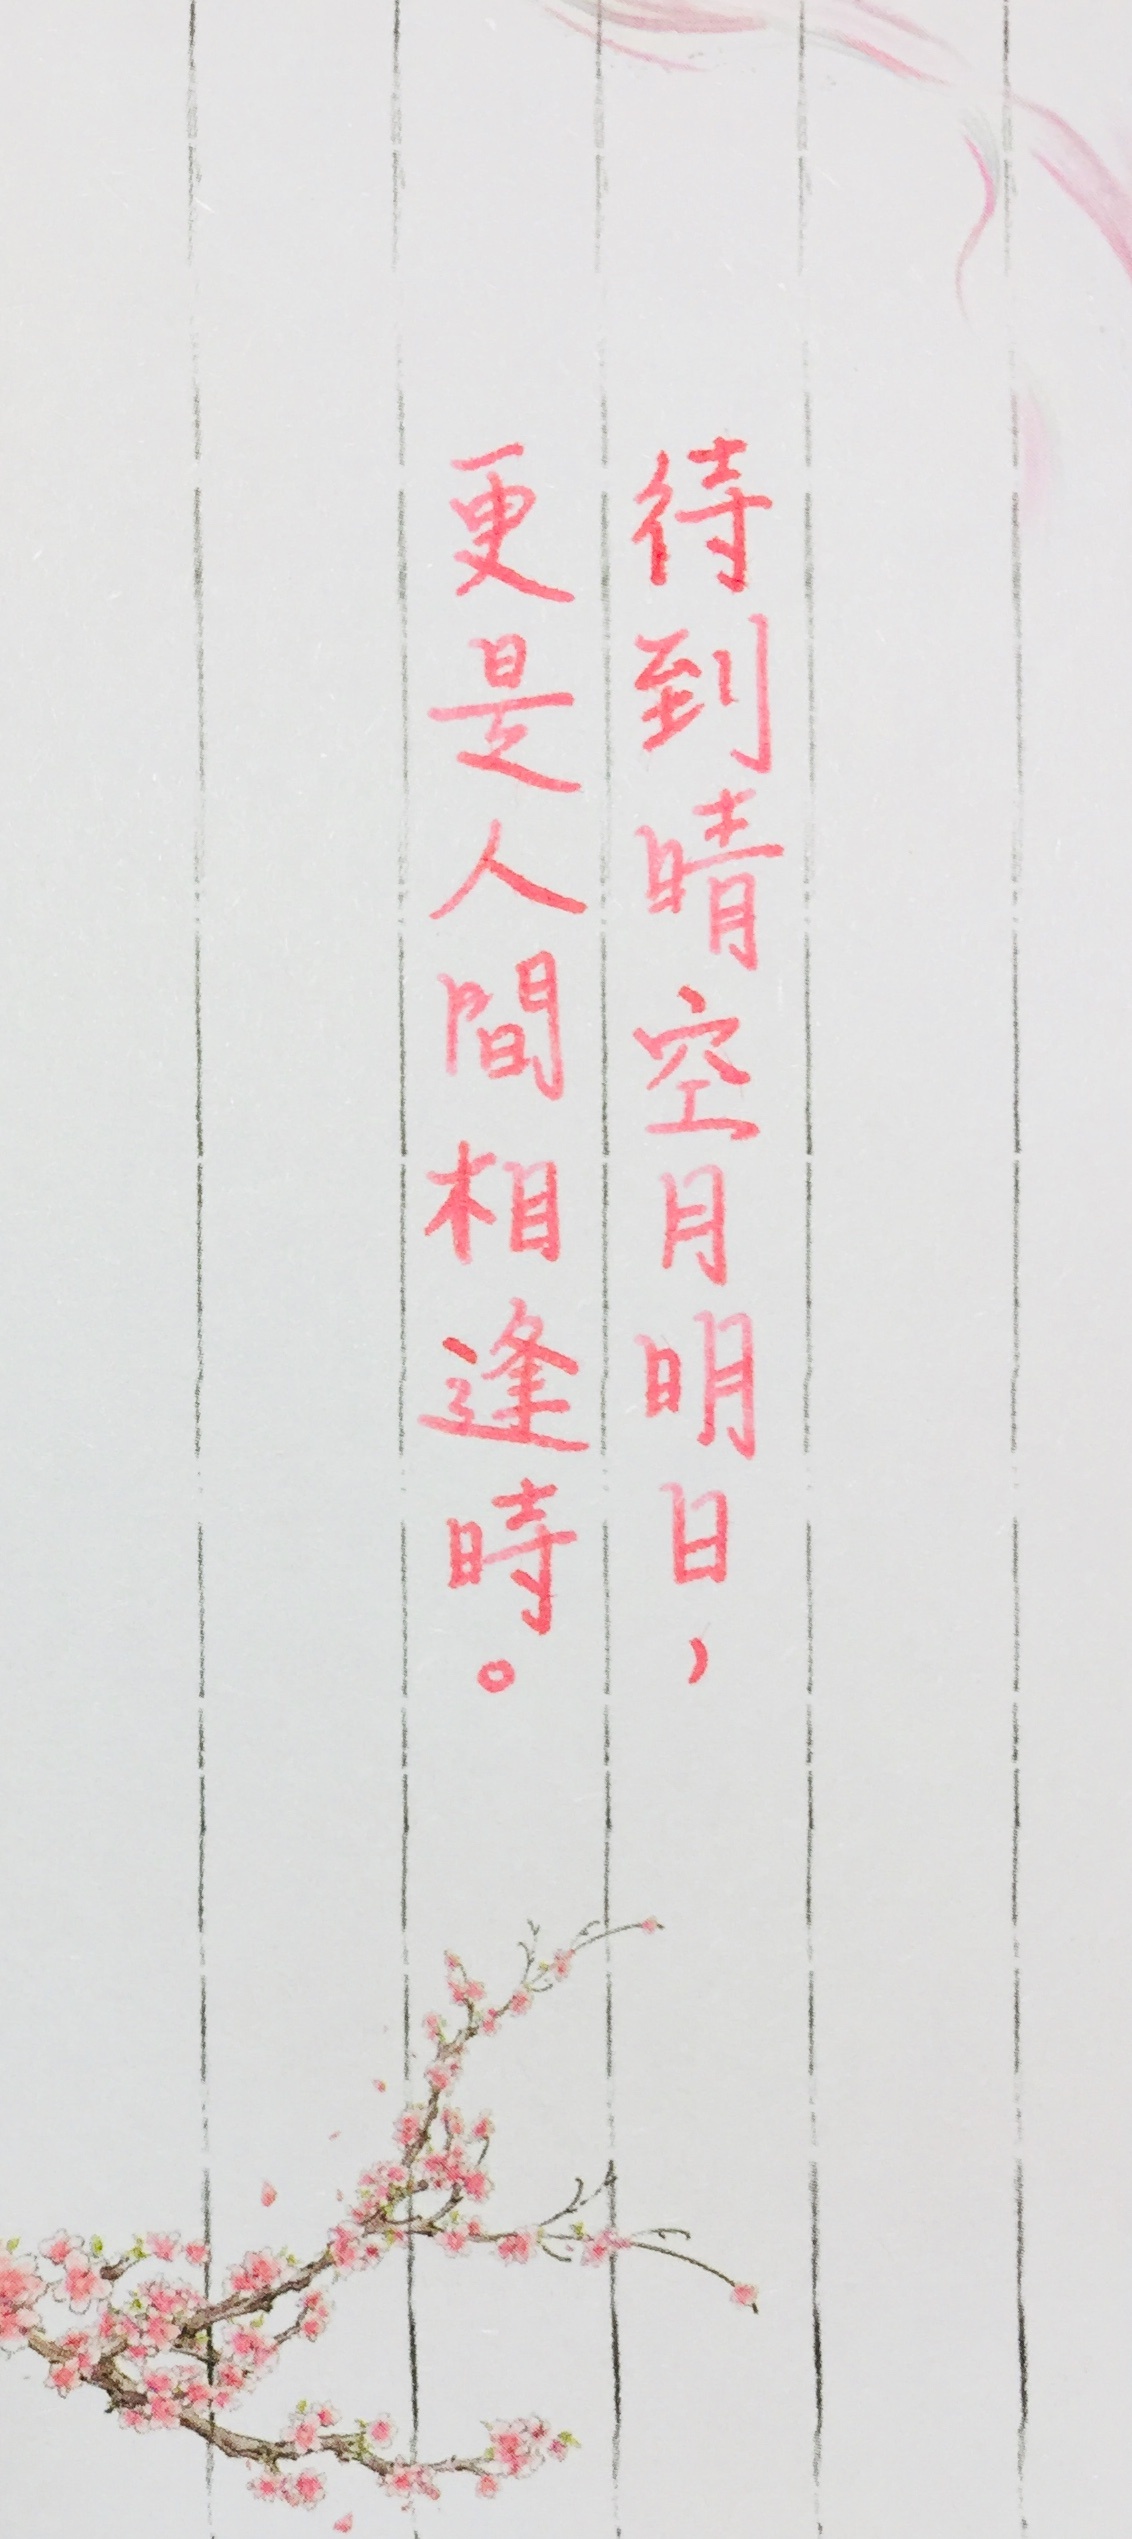 待到晴空月明日，
更是人間相逢時。